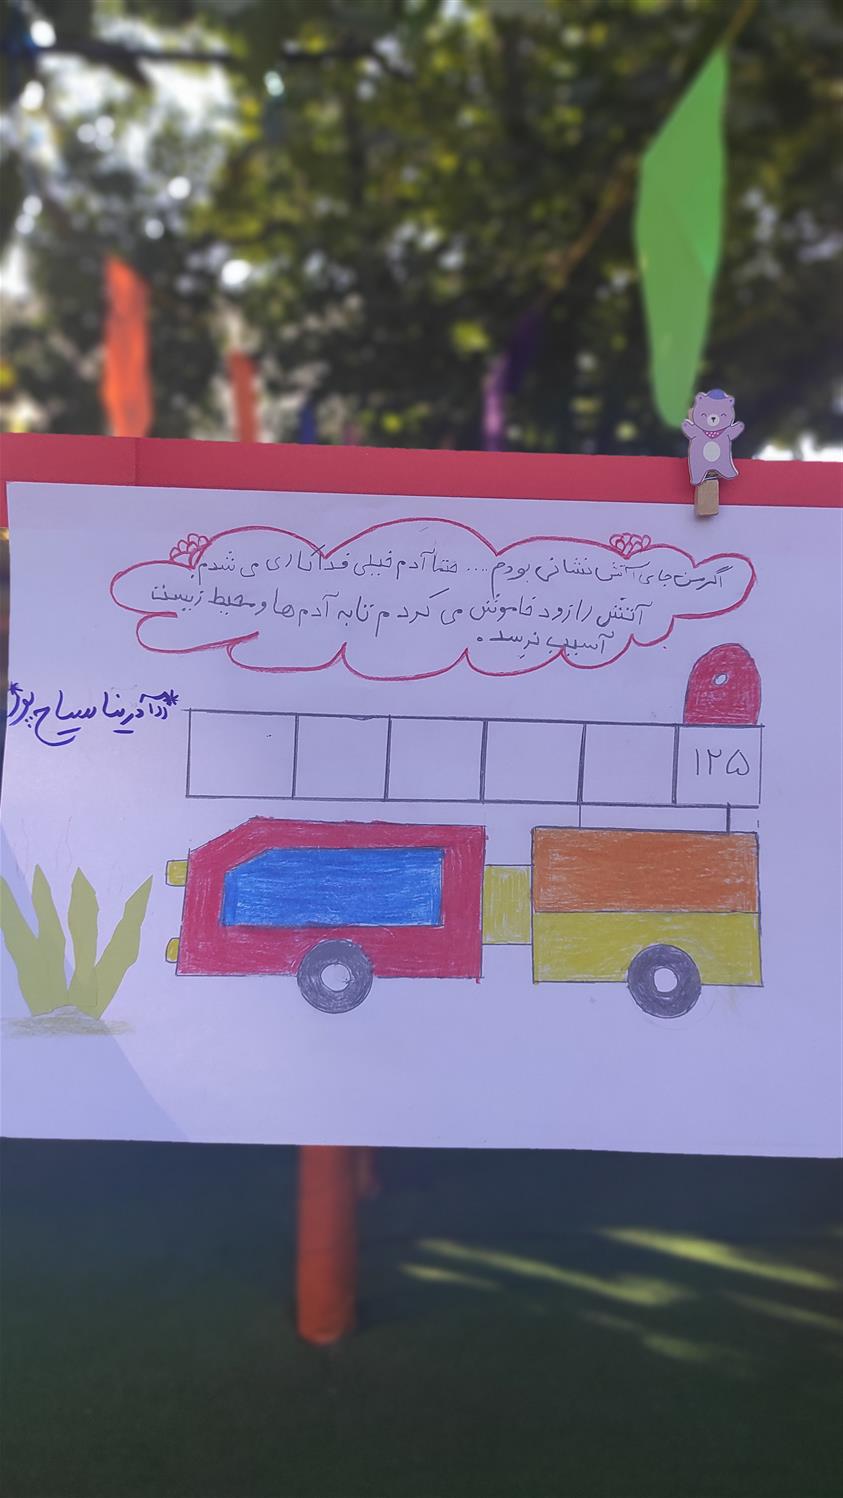 اگر من جای آتش نشانی بودم .... حتما آدم خیلی فداکاری می شدم.
آتش را زود خاموش می کردم تا به آدم ها و محیط زیست
آسیب نرسد.
آدرینا سیاح پور
۱۲۵